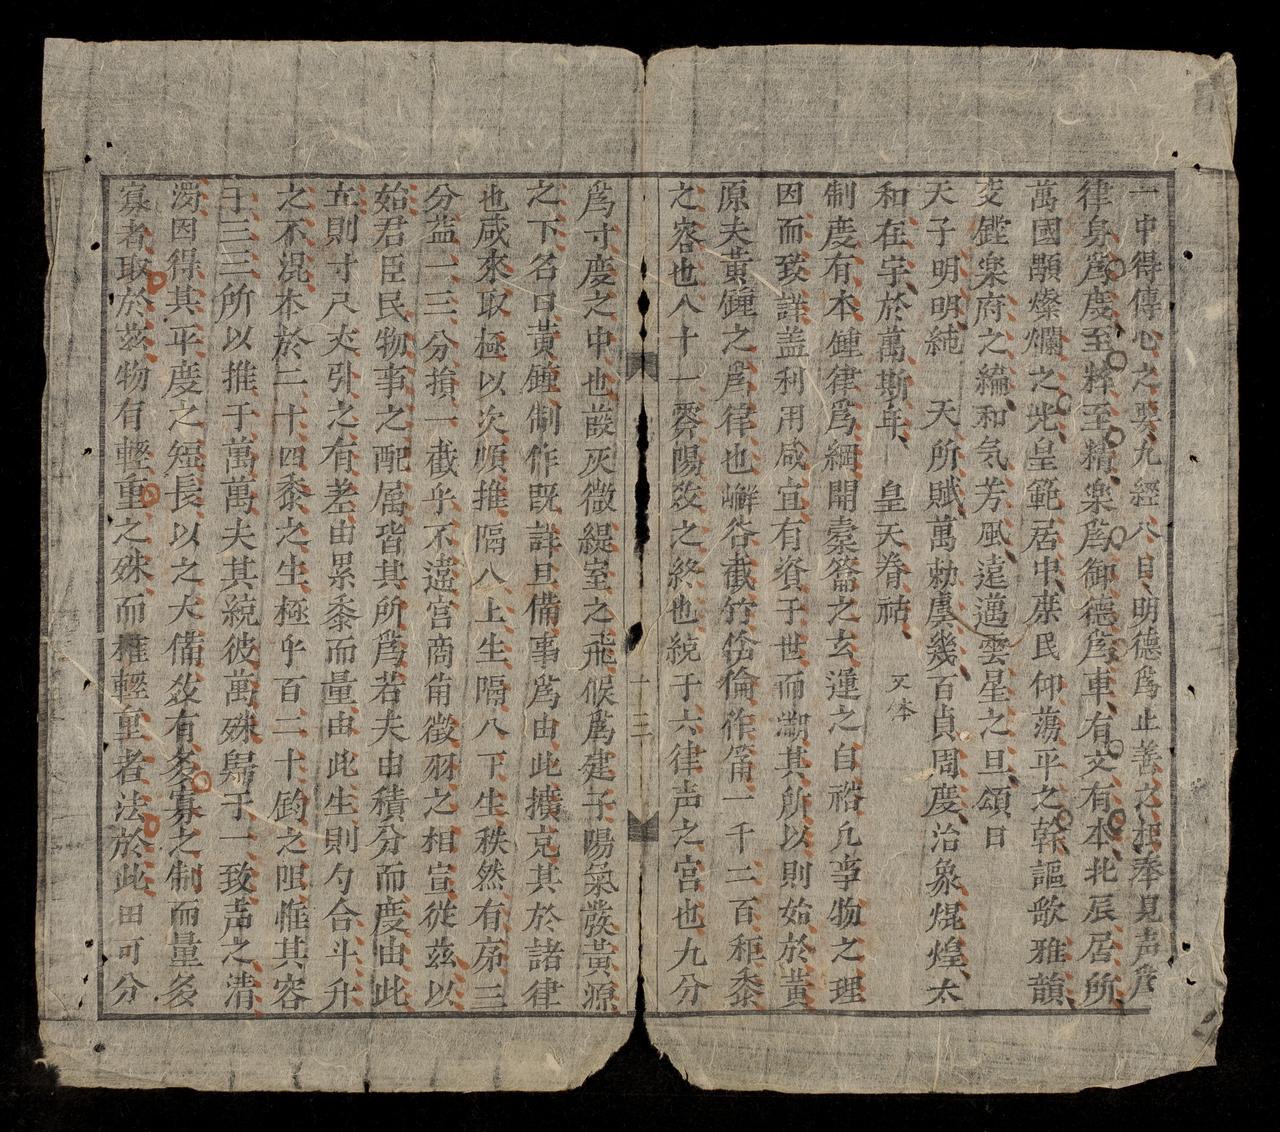 一中得傳心之要九經八目明德爲止善之極奉見声爲
律身爲度至粹至精樂爲御德爲車有文有本北辰居所
萬國顒燦爛之光皇範居中庶民仰蕩平之幹謳歌雅韻
変鏗楽府之綸和気芳風遠邁雲星之旦頌曰
天子明明純 天所賦萬勅虞幾百貞周度治象焜煌太
和在宇於萬斯年 皇天眷祜 文体
制度有本鍾律爲綱開橐籥之玄運之自裕凡事物之理
因而致詳盖利用咸宜有資于世而溯其所以則始於黄
原夫黄鍾之爲律也嶰谷截竹伶倫作筩一千二百秬黍
之容也八十一零陽爻之終也統于六律声之宮也九分
十三
爲寸度之中也葭灰徵緹室之飛候爲建子陽氣發黄源
之下名曰黄鍾制作既詳且備事爲由此擴充其於諸律
也咸來取極以次順推隔八上生隔八下生秩然有序三
分益一三分損一截乎不違宮商角徵羽之相宣從茲以
始君臣民物事之配属皆其所爲若夫由積分而度由此
立則寸尺丈引之有差由累黍而量由此生則勺合斗升
之不混本於二十四黍之生極乎百二十鈞之限惟其容
于三三所以推于萬萬夫其統彼萬殊歸于一致声之清
濁因得其平度之短長以之大備爻有多寡之制而量多
寡者取於茲物有輕重之殊而権輕重者法於此田可分